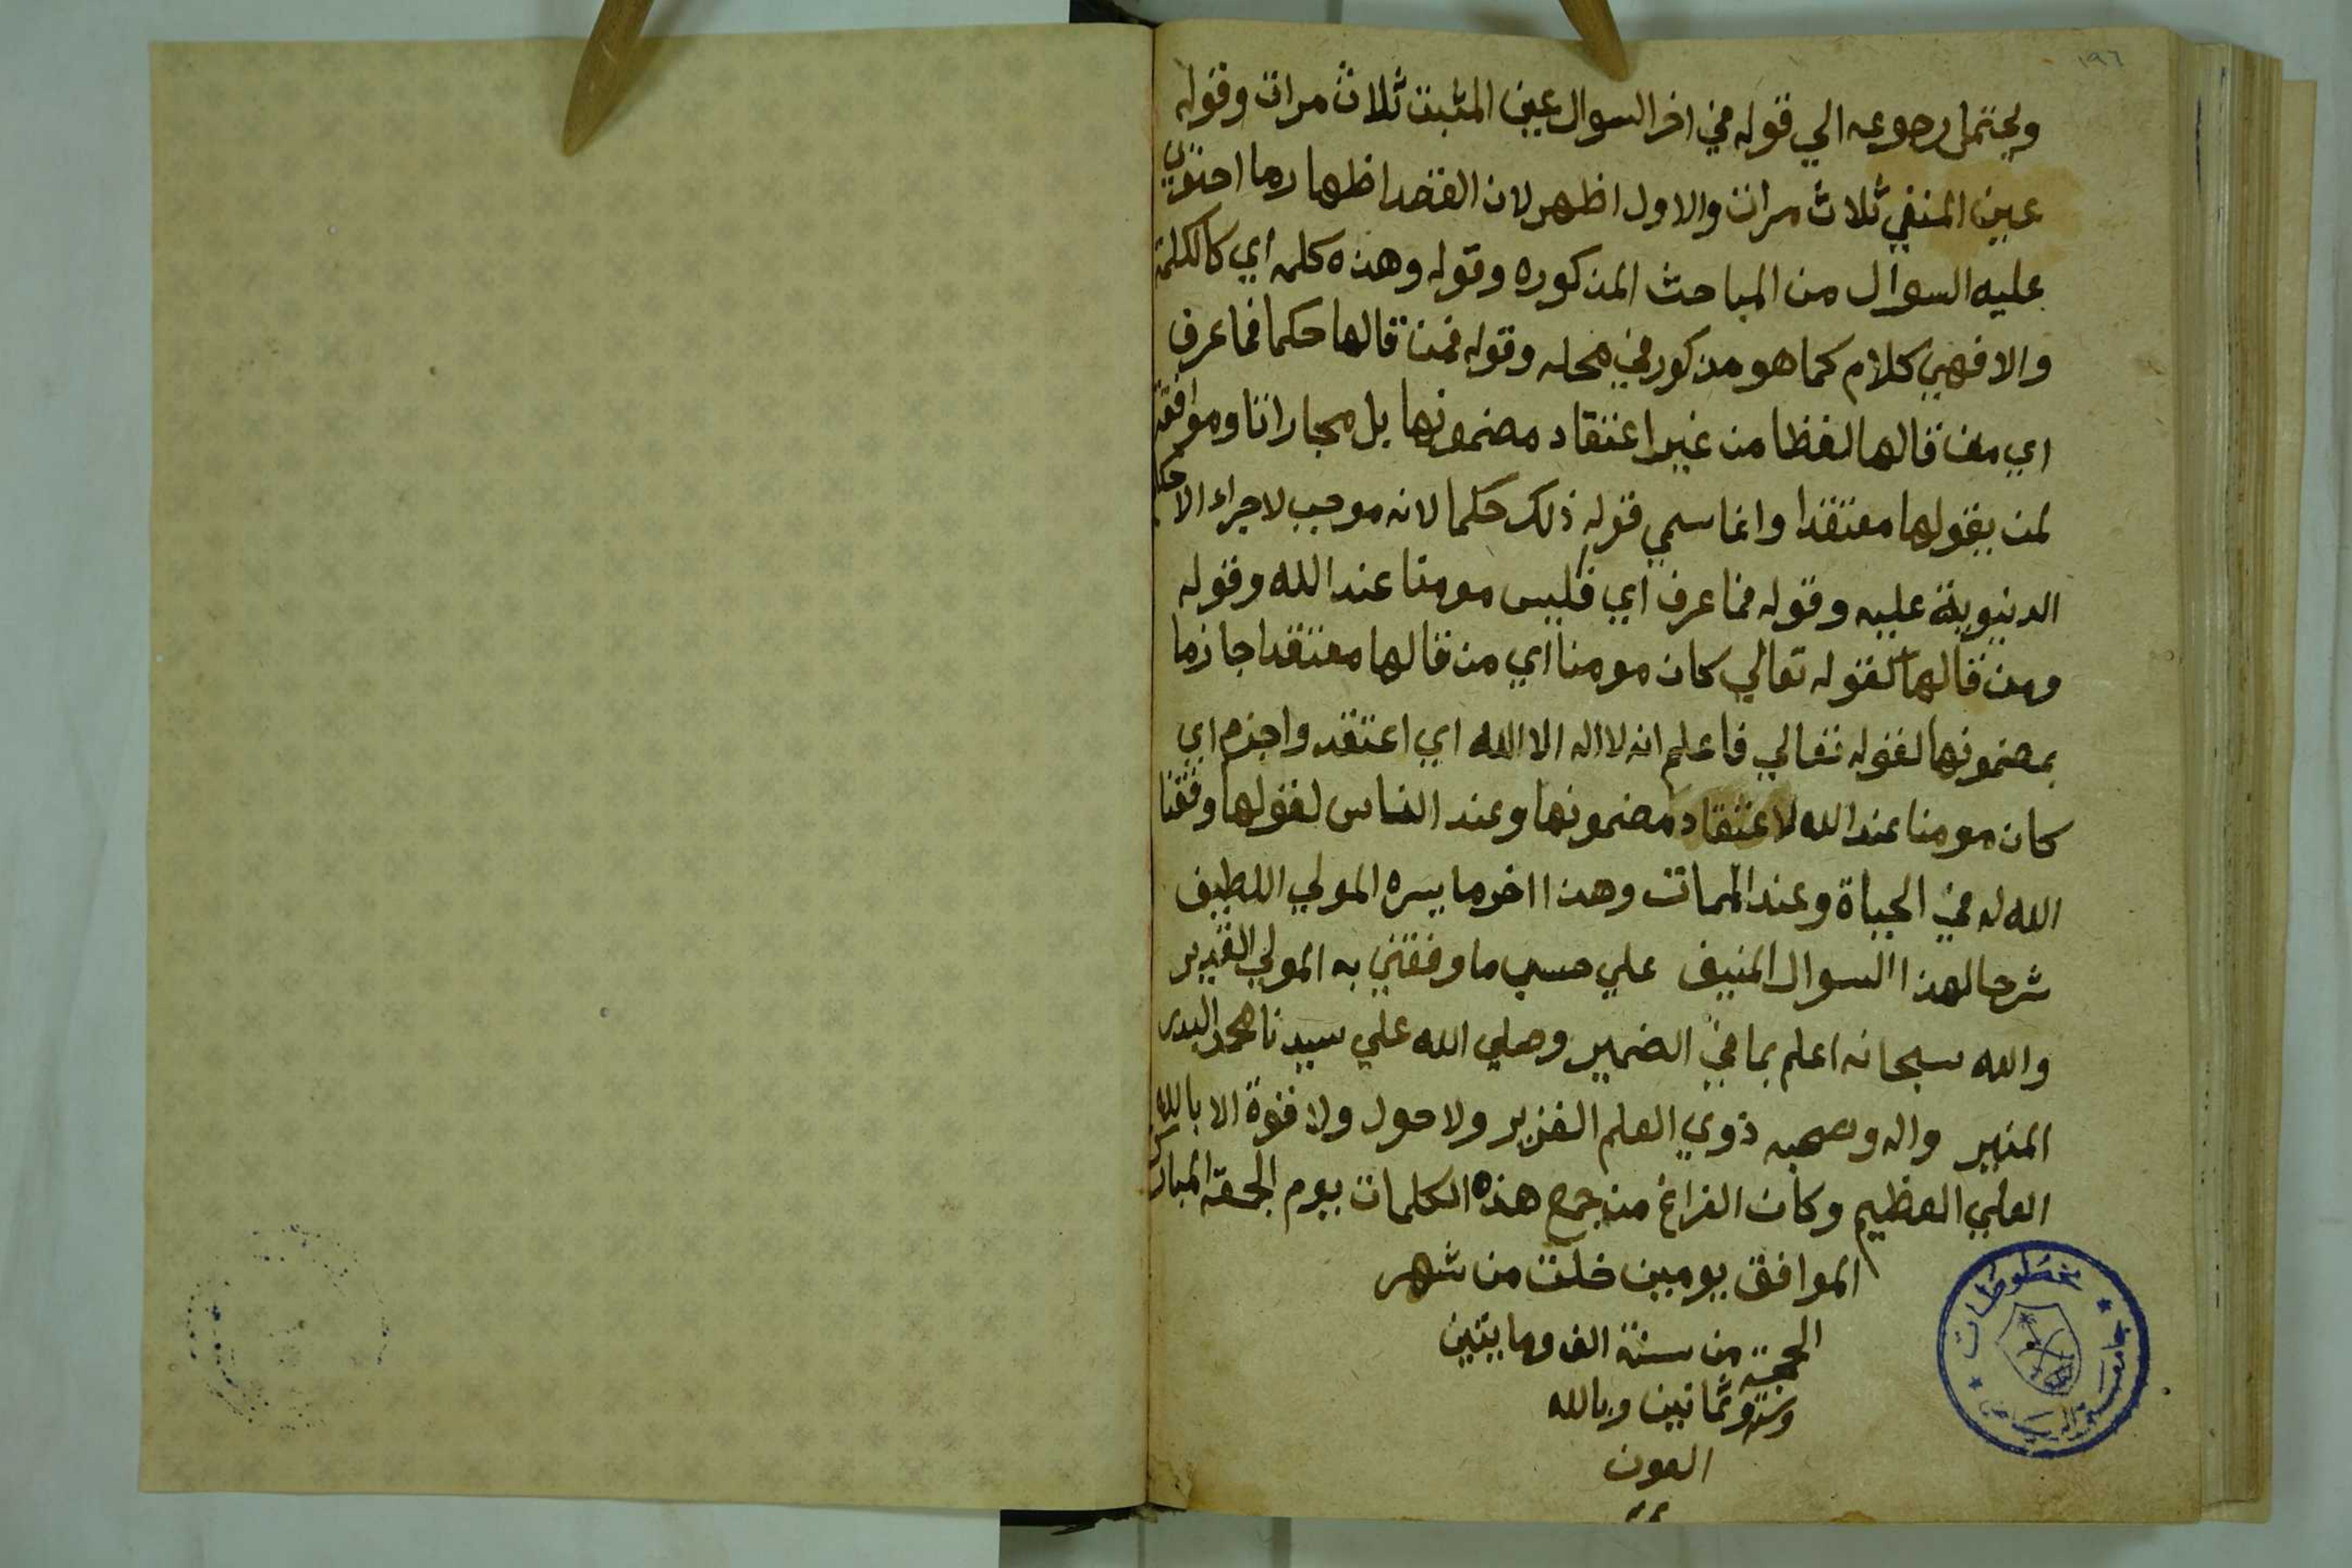 ١٩٦
ويحتمل رجوعه الي قوله في اخر السوال عين المثبت ثلاث مرات وقوله
عين المنفي ثلاث مرات والاول اظهر لان القصد اظهار ما احتوي
عليه السوال من المباحث المذكوره وقوله وهذه كلمه اي كالكلمة
والا فهي كلام كما هو مذكور في محله وقوله فمن قالها حكما فما عرف
اي من قالها لفظا من غير اعتقاد مضمونها بل مجاراتا وموافقة
لمن يقولها معتقدا وانما سمي قوله ذلك حكما لانه موجب لاجراء الاحكام
الدنيوية عليه وقوله فما عرف اي فليس مومنا عند الله وقوله
ومن قالها لقوله تعالي كان مومنا اي من قالها معتقدا جازما
بمضمونها لقوله تعالي فاعلم انه لا اله الا الله اي اعتقد واجزم اي
كان مومنا عند الله لاعتقاد مضمونها وعند الناس لقولها وفقنا
الله له في الحياة وعند الممات وهذا اخر ما يسره المولي اللطيف
شرحا لهذا السوال المنيف علي حسب ما وفقني به المولي القدير
والله سبحانه اعلم بما في الضمير وصلي الله علي سيدنا محمد البدر
المنير واله وصحبه ذوي العلم الغزير ولا حول ولا قوة الا بالله
العلي العظيم وكان الفراغ من جمع هذه الكلمات يوم الجمعة المبارك
الموافق يومين خلت من شهر
الحجة من سنة الف ومايتين
وستة وثمانين وبالله
العون
مخطوطات
جامعة الرياض